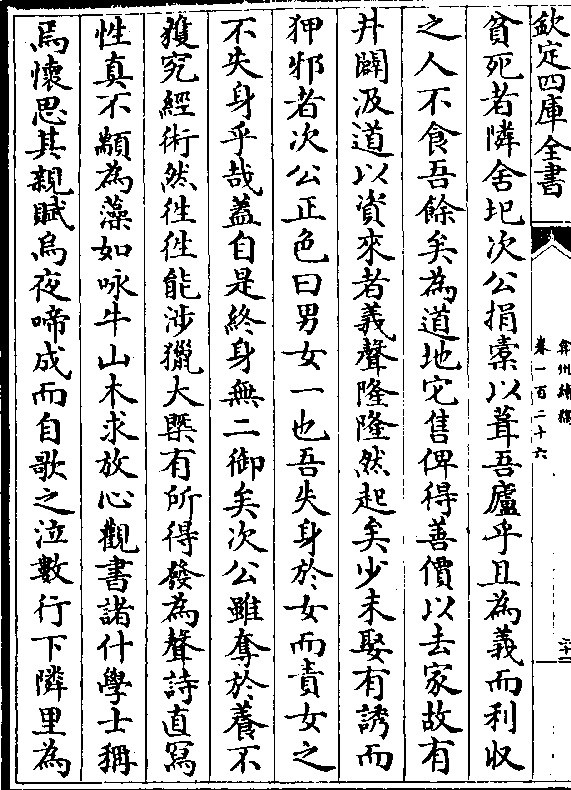 欽定四庫全書
弇州續稿
卷一百二十六
貧死者隣舍圯次公捐橐以葺吾廬乎且為義而利収
之人不食吾餘矣為道地它售俾得善價以去家故有
井闢汲道以資來者義聲隆隆然起矣少未娶有誘而
狎邪者次公正色曰男女一也吾失身於女而責女之
不失身乎哉蓋自是終身無二御矣次公雖奪於養不
獲究經術然徃徃能涉獵大槩有所得發為聲詩直寫
性真不顓為藻如咏牛山木求放心觀書諸什學士稱
焉懷思其親賦烏夜啼成而自歌之泣數行下隣里為